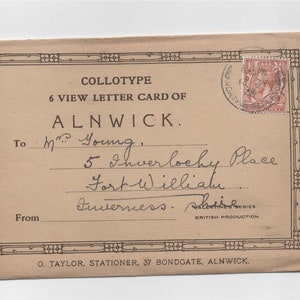 COLLOTYPE
6 VIEW LETTER CARD OF
ALNWICK.
To Mrs Young.
5 Inverlochy Place
Fort William.
Inverness. Shire
SERIES
From
BRITISH PRODUCTION
O. TAYLOR, STATIONER, 37 BONDGATE, ALNWICK.